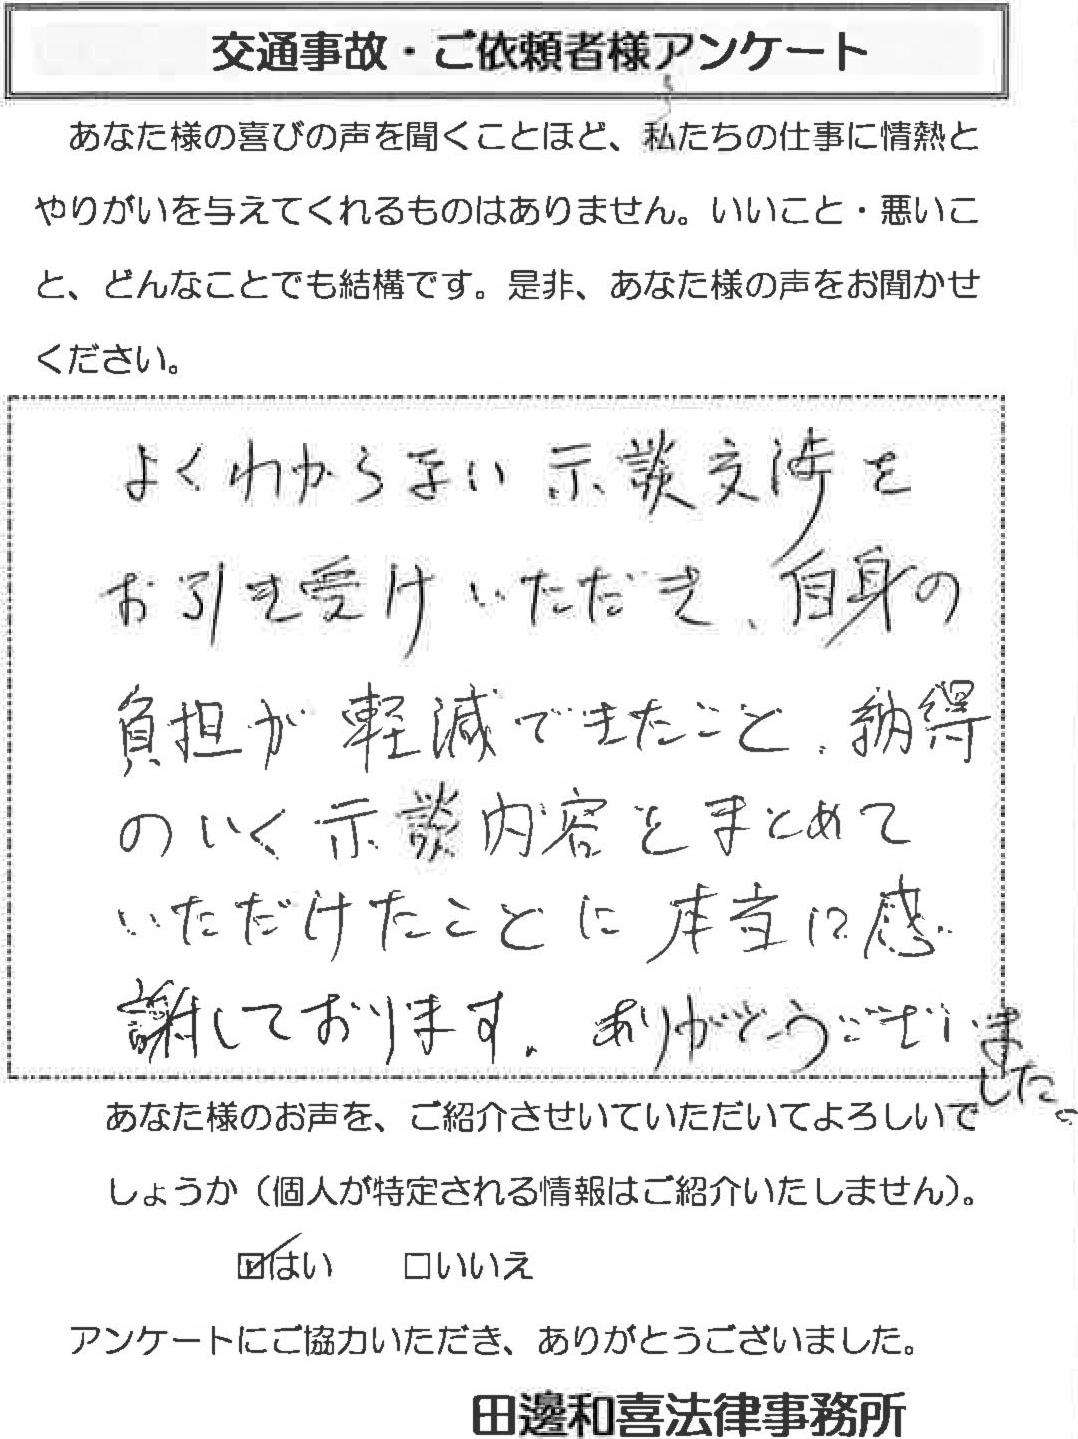 交通事故・ご依頼者様アンケート
あなた様の喜びの声を聞くことほど、私たちの仕事に情熱と
やりがいを与えてくれるものはありません。いいこと・悪いこ
と、どんなことでも結構です。是非、あなた様の声をお聞かせ
ください。
よくわからない示談交渉を
お引き受けいただき、自身の
負担が軽減できたこと、納得
のいく示談内容をまとめて
いただけたことに本当に感
謝しております。ありがとうございま
した。
あなた様のお声を、ご紹介させいていただいてよろしいで
しょうか（個人が特定される情報はご紹介いたしません）。
☑はい　□いいえ
アンケートにご協力いただき、ありがとうございました。
田邊和喜法律事務所